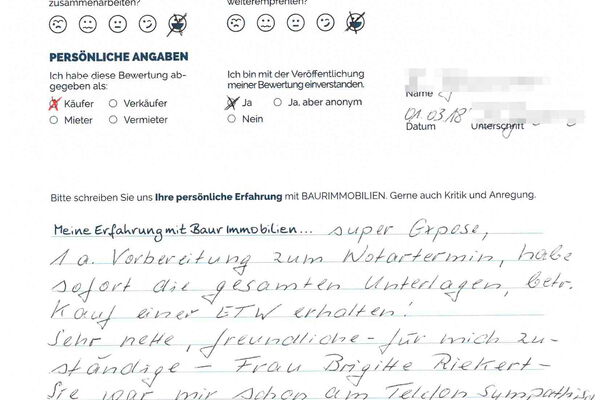 zusammenarbeiten?
weiterempfehlen?
PERSÖNLICHE ANGABEN
Ich habe diese Bewertung ab-
gegeben als:
Käufer Verkäufer
Mieter Vermieter
Ich bin mit der Veröffentlichung
meiner Bewertung einverstanden.
Ja Ja, aber anonym
Nein
Name
01.03.18
Datum Unterschrift
Bitte schreiben Sie uns Ihre persönliche Erfahrung mit BAURIMMOBILIEN. Gerne auch Kritik und Anregung.
Meine Erfahrung mit Baur Immobilien... super Expose,
1 a. Vorbereitung zum Notartermin, habe
sofort die gesamten Unterlagen, betr.
Kauf einer ETW erhalten!
Sehr nette, freundliche - für mich zu-
ständige - Frau Brigitte Riekert -
Sie war mir schon am Telefon sympathisch